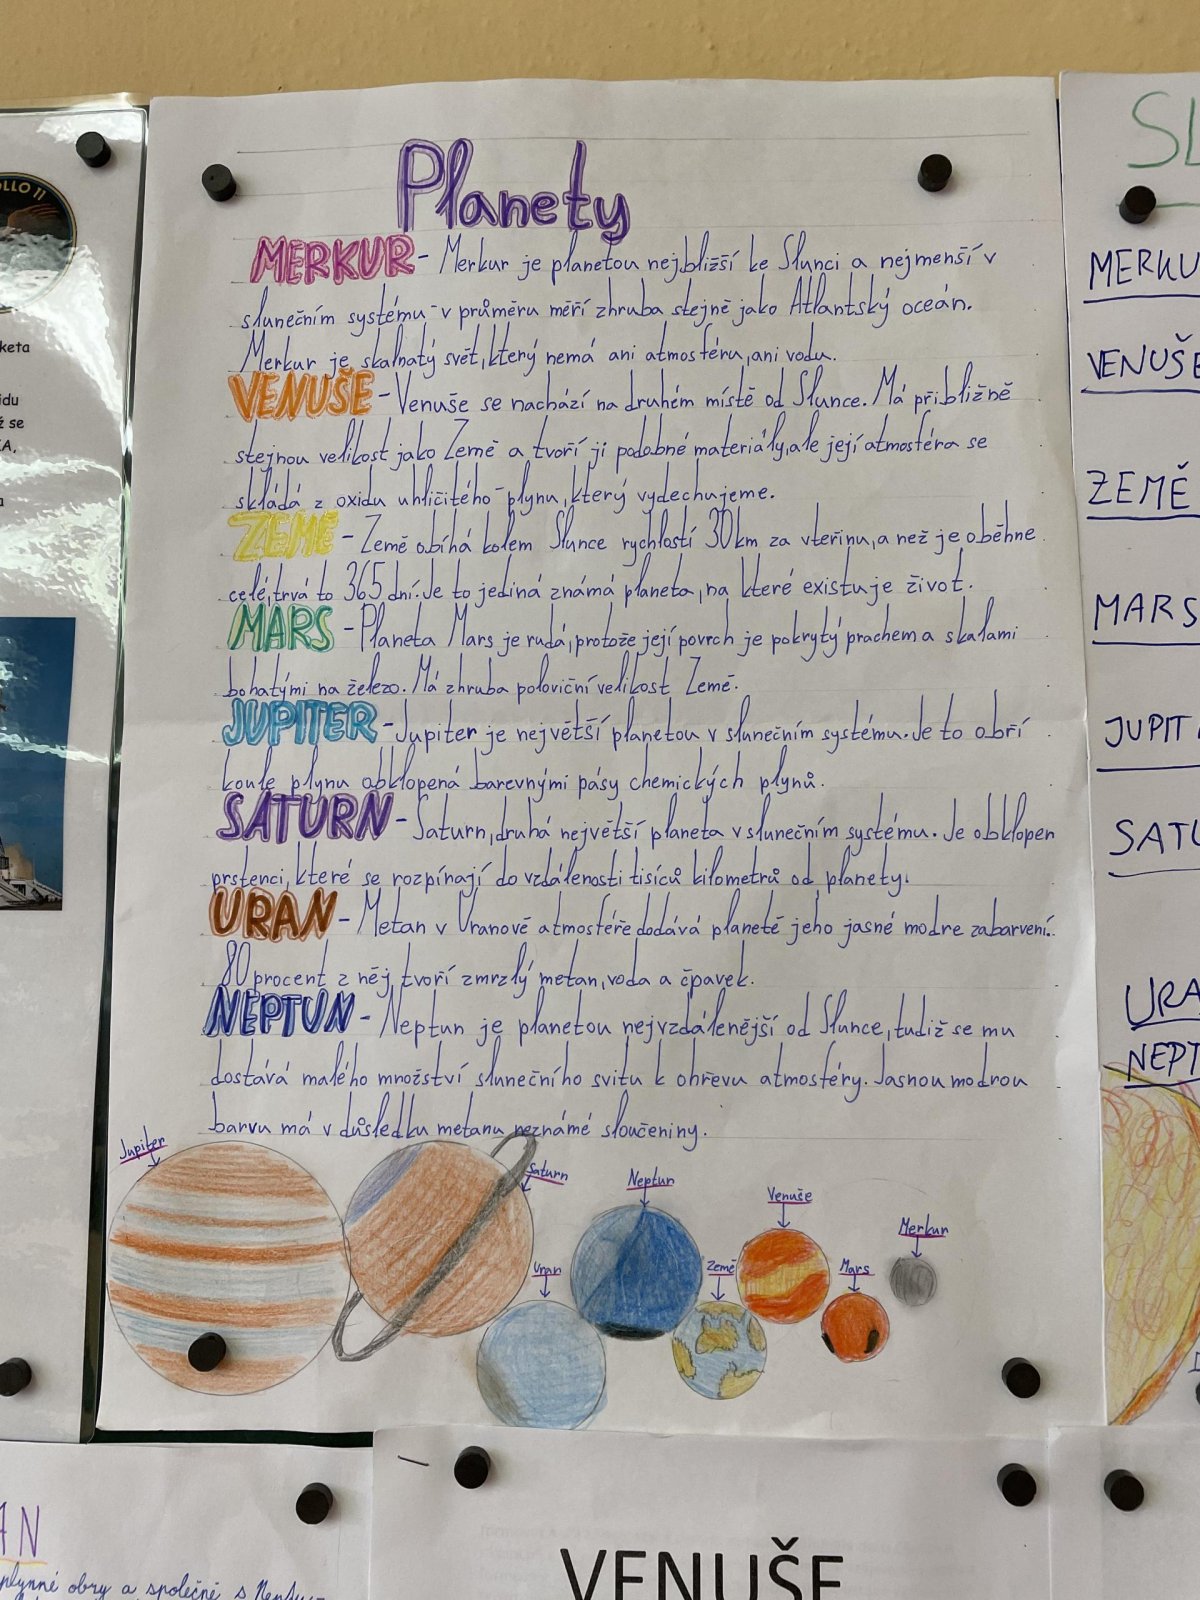 Planety
MERKUR - Merkur je planetou nejbližší ke Slunci a nejmenší v
slunečním systému - v průměru měří zhruba stejně jako Atlantský oceán.
Merkur je skalnatý svět, který nemá ani atmosféru, ani vodu.
VENUŠE - Venuše se nachází na druhém místě od Slunce. Má přibližně
stejnou velikost jako Země a tvoří ji podobné materiály, ale její atmosféra se
skládá z oxidu uhličitého - plynu, který vydechujeme.
ZEMĚ - Země obíhá kolem Slunce rychlostí 30km za vteřinu, a než je oběhne
celé, trvá to 365 dní. Je to jediná známá planeta, na které existuje život.
MARS - Planeta Mars je rudá, protože její povrch je pokrytý prachem a skalami
bohatými na železo. Má zhruba poloviční velikost Země.
JUPITER - Jupiter je největší planetou v slunečním systému. Je to obří
koule plynu obklopená barevnými pásy chemických plynů.
SATURN - Saturn, druhá největší planeta v slunečním systému. Je obklopen
prstenci, které se rozpínají do vzdálenosti tisíců kilometrů od planety.
URAN - Metan v Uranově atmosféře dodává planetě jeho jasné modré zabarvení.
80 procent z něj tvoří zmrzlý metan, voda a čpavek.
NEPTUN - Neptun je planetou nejvzdálenější od Slunce, tudiž se mu
dostává malého množství slunečního svitu k ohřevu atmosféry. Jasnou modrou
barvu má v důsledku metanu neznámé sloučeniny.
Jupiter
Saturn
Neptun
Venuše
Merkur
Uran
Země
Mars
OLLO 11
keta
idu
ž se
KA,
a
SL
MERKU
VENUŠE
ZEMĚ
MARS
JUPIT
SATU
URA
NEPT
AN
plynné obry a společně s Neptu
VENUŠE